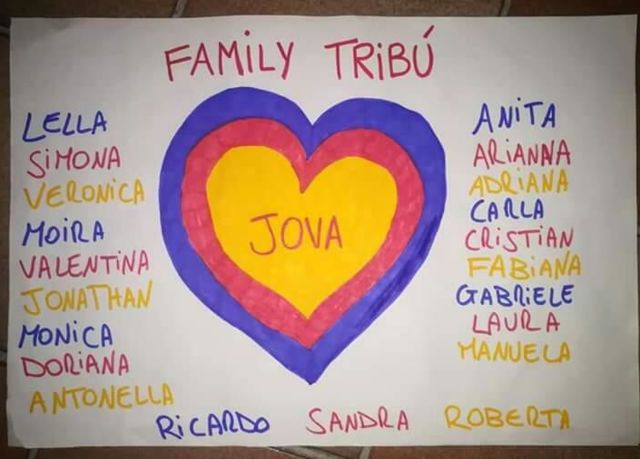 FAMILY TRIBÚ
LELLA
SIMONA
VERONICA
MOIRA
VALENTINA
JONATHAN
MONICA
DORIANA
ANTONELLA
JOVA
ANITA
ARIANNA
ADRIANA
CARLA
CRISTIAN
FABIANA
GABRIELE
LAURA
MANUELA
RICARDO SANDRA ROBERTA